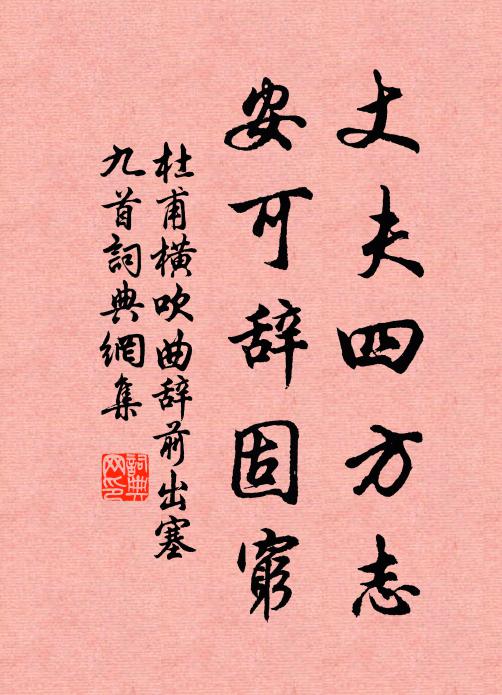 丈夫四方志
安可辞固窮
杜甫横吹曲辞前出塞
九首詞典網集
詞典
网印